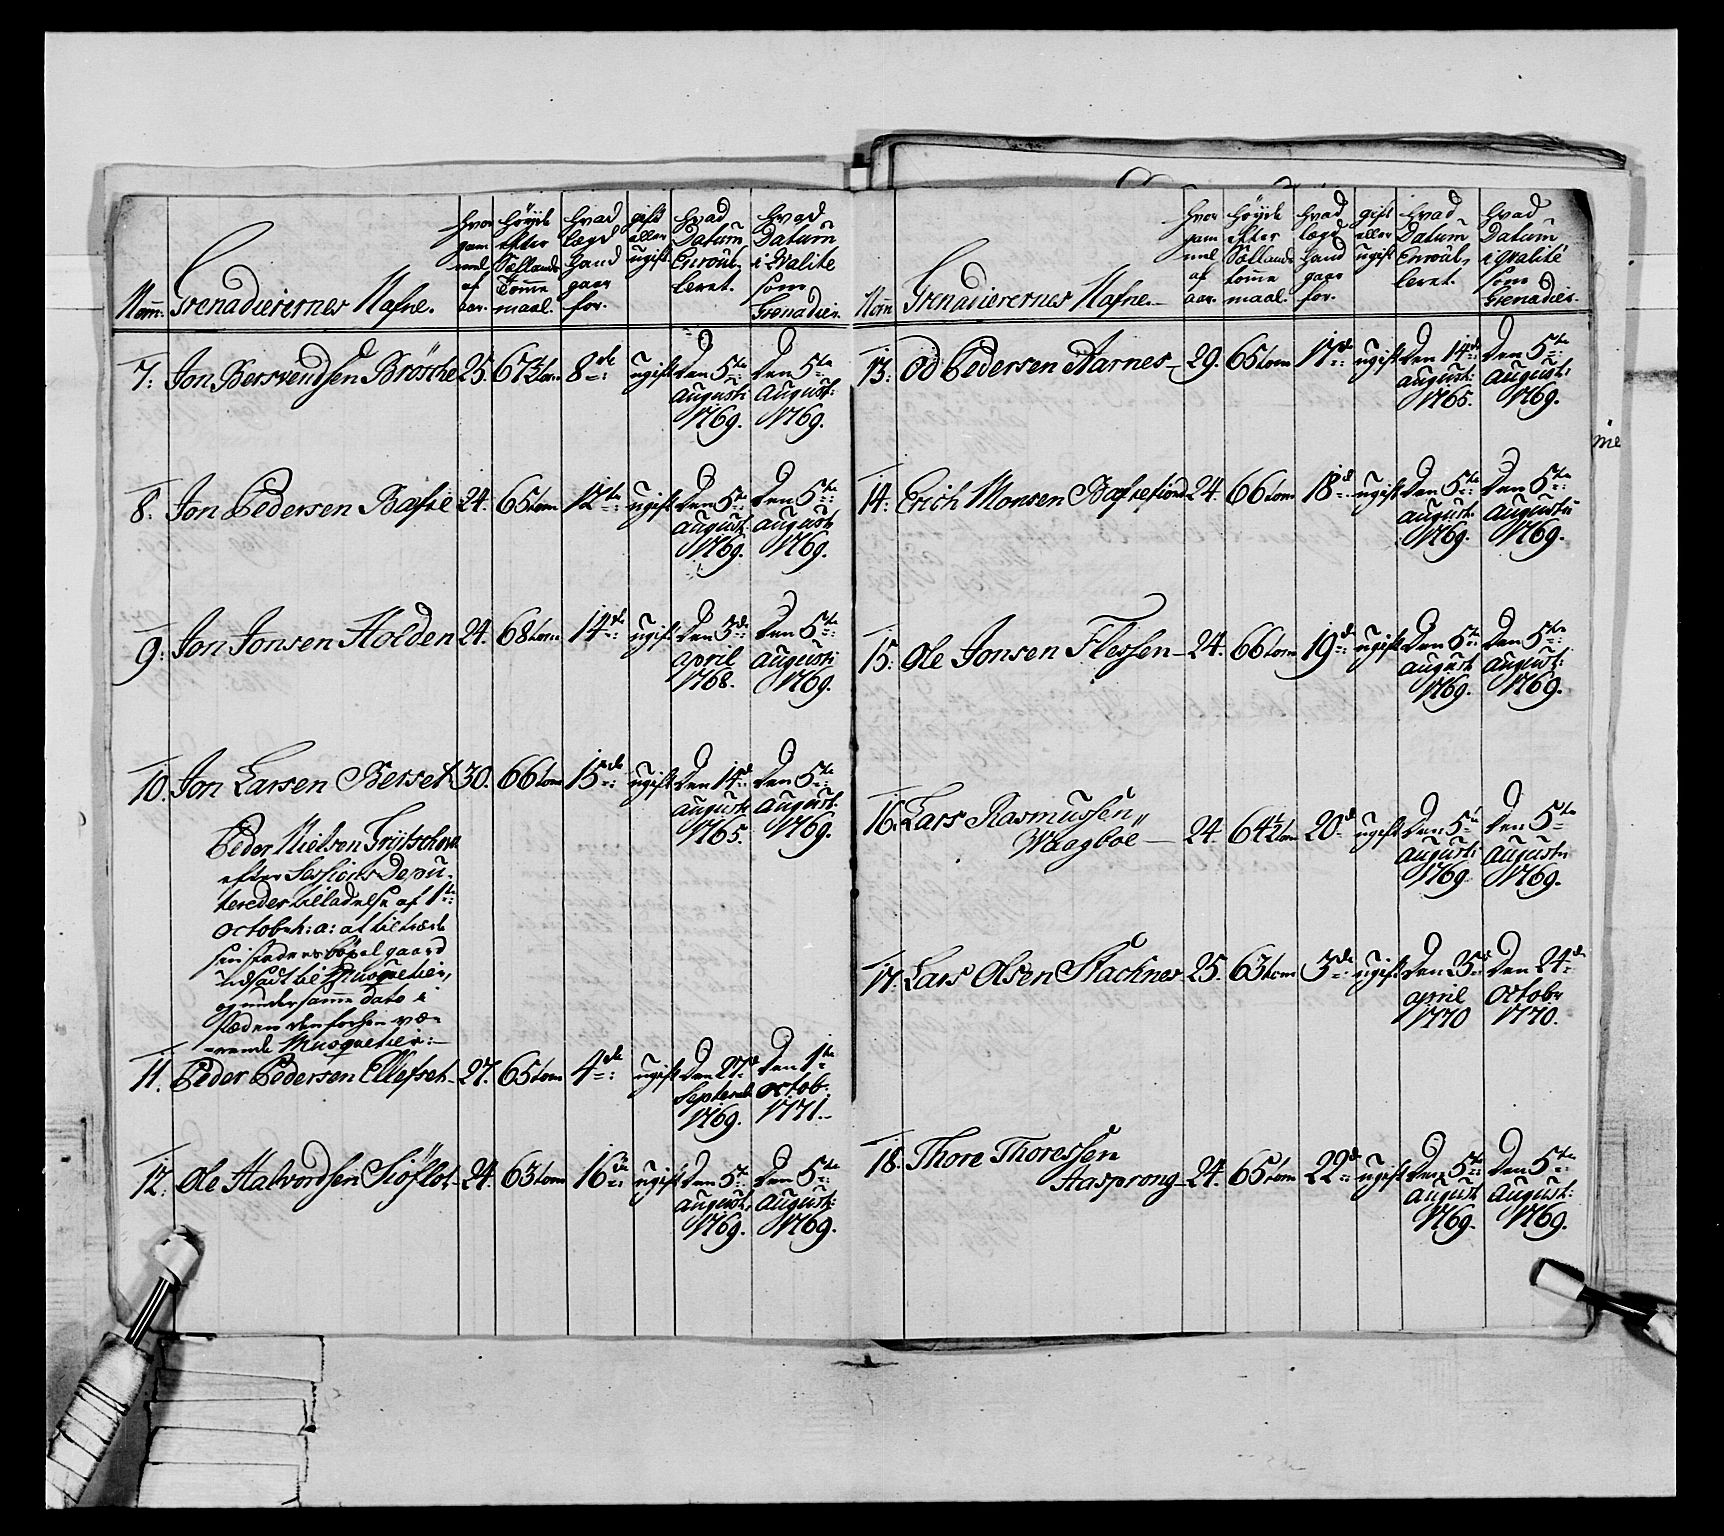 Nom: Grenadierernes Nafne. hvor gam mel af aar. høyde efter Siællands tomme maal. hvad lægd hand gaar for. gift eller ugift hvad Datum Enroul, leret. hvad Datum i qvalité som Grenadier.
7: Jon Bersvendsen Brøsche 25. 67½ tom 8de ugift den 5te august: 1769. den 5te august: 1769.
8. Jon Pedersen 24. 65 tom 12te ugift den 5te august: 1769. den 5te august: 1769.
9: Jon Jonsen Holden 24. 68 tom 14de ugift den 3de april 1768. den 5te august: 1769.
10. Jon Larsen Berset 30. 66 tom 15de ugift den 14de august: 1765. den 5te august: 1769.
Peder Nielsen
efter Sessions Depu-
teredes tilladelse af 1te
octobr: h: a: at tiltræde
sin faders bøxel gaard
udsadt til Musquetier,
og under samme dato i
stæden den forhen væ-
rende Musquetier:
11. Peder Pedersen Ellefset 27. 65 tom 4de ugift den 27de Septemb: 1769. den 1te octob: 1771.
12: Ole Halvordsen Siøflot 24. 63 tom 16de ugift den 5te august: 1769. den 5te august: 1769.
Nom Grenadierernes Nafne. hvor gam mel af aar. høyde efter Siællands tomme maal. hvad lægd hand gaar for. gift eller ugift hvad Datum Enroul, leret. hvad Datum i qvalité som Grenadier.
13: Od Pedersen Aarnes 29. 65 tom 17de ugift den 14de august: 1765. den 5te august: 1769.
14: Erich Monsen 24. 66 tom 18de ugift den 5te august: 1769. den 5te augustii 1769.
15: Ole Jonsen Flessen 24. 66 tom 19de ugift den 5te august 1769. den 5te august: 1769.
16. Lars Rasmussen
Waagböe 24. 64½ tom 20de ugift den 5te august: 1769. den 5te augustii 1769.
17. Lars Olsen Stacknes 25. 63 tom 3de ugift den 25de april 1770 den 24de octobr 1770.
18. Thore Thoressen
Aasprong 24. 65 tom 22de ugift den 5te august 1769. den 5te august: 1769.